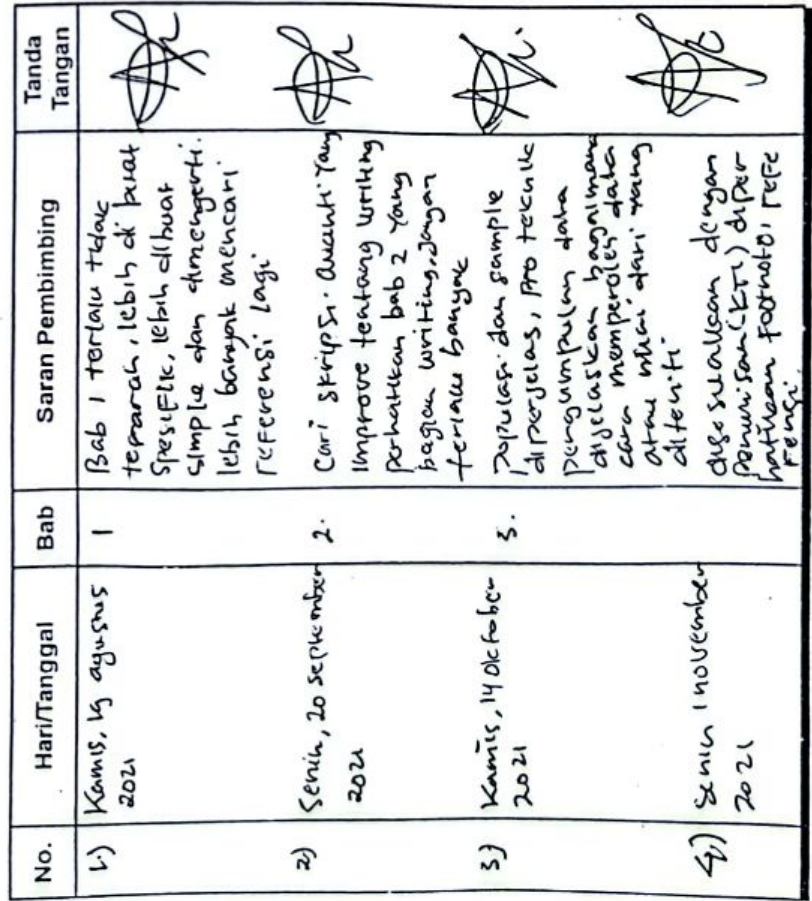 No. Hari/Tanggal Bab Saran Pembimbing Tanda Tangan
1.) Kamis, 19 agustus
2021
1
Bab 1 terlalu tidak
terarah, lebih di buat
Spesifik, lebih dibuat
simple dan dimengerti.
lebih banyak mencari
referensi lagi
2) Senin, 20 September
2021
2.
Cari skripsi. Yang
Improve tentang writing
perhatikan bab 2 Yang
bagian writing, Jangan
terlalu banyak
3) Kamis, 14 Oktober
2021
3.
Populasi dan sample
diperjelas, teknik
pengumpulan data
dijelaskan bagaimana
cara memperoleh data
atau dari yang
diteliti
4) Senin 1 november
2021
disesuaikan dengan
Penulisan (KTI) diper
hatikan Footnote, refe
rensi.